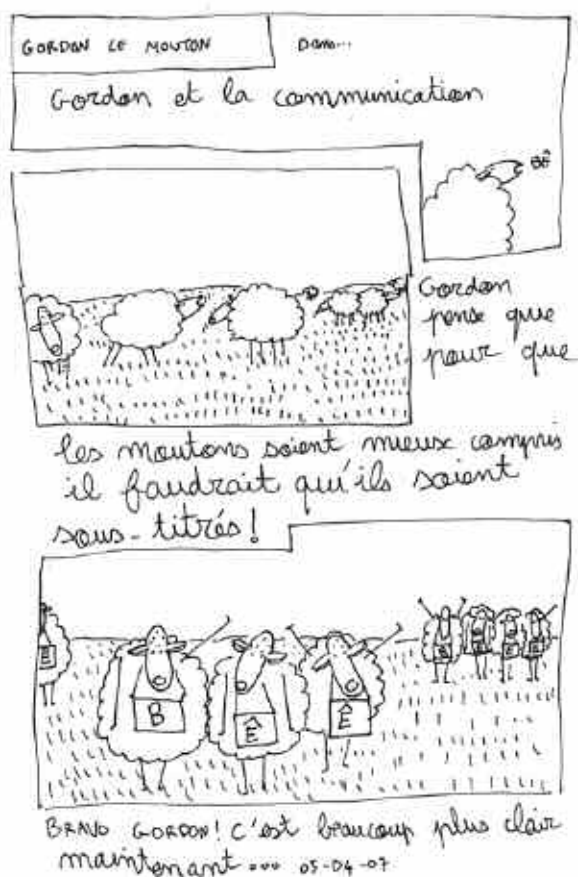 GORDON LE MOUTON
Dans...
Gordon et la communication
BÊ
Gordon
pense que
pour que
les moutons soient mieux compris
il faudrait qu'ils soient
sous-titrés!
Ê
B
Ê
Ê
B
Ê
Ê
Ê
BRAVO GORDON! C'est beaucoup plus clair
maintenant... 05-04-07